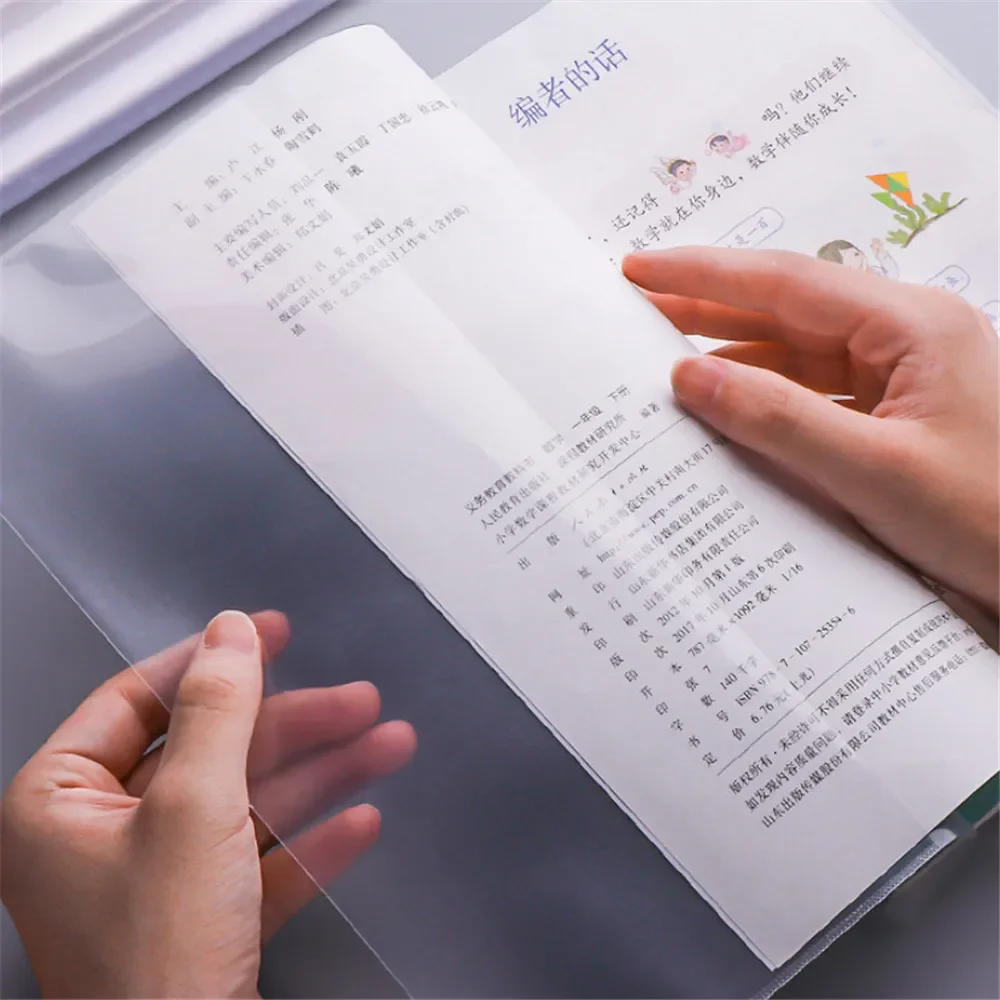 主　编：卢 江　杨 刚
副主编：王永春　陶雪鹤
主要编写人员：刘品一　袁玉霞　丁国忠　熊云
责任编辑：张 华　陈 曦
美术编辑：郑文娟
封面设计：吕 旻　郑文娟
版面设计：北京吴勇设计工作室
插　图：北京吴勇设计工作室（含封面）
义务教育教科书　数学　一年级　下册
人民教育出版社　课程教材研究所　编著
小学数学课程教材研究开发中心
出　版　人民教育出版社
（北京市海淀区中关村南大街17号
网　址　http://www.pep.com.cn
重　印　山东出版传媒股份有限公司
发　行　山东新华书店集团有限公司
印　刷　山东新华印务有限责任公司
版　次　2012年10月第1版
印　次　2017年10月山东第6次印刷
开　本　787毫米×1092毫米　1/16
印　张　7
字　数　140千字
书　号　ISBN 978-7-107-25354-6
定　价　6.76元（上光）
版权所有·未经许可不得采用任何方式擅自复制或使用
如发现内容质量问题，请登录中小学教材意见反馈平台：
山东出版传媒股份有限公司教材中心售后服务电话：
编者的话
吗？他们继续
，还记得
数学就在你身边，数学伴随你成长！
是一百